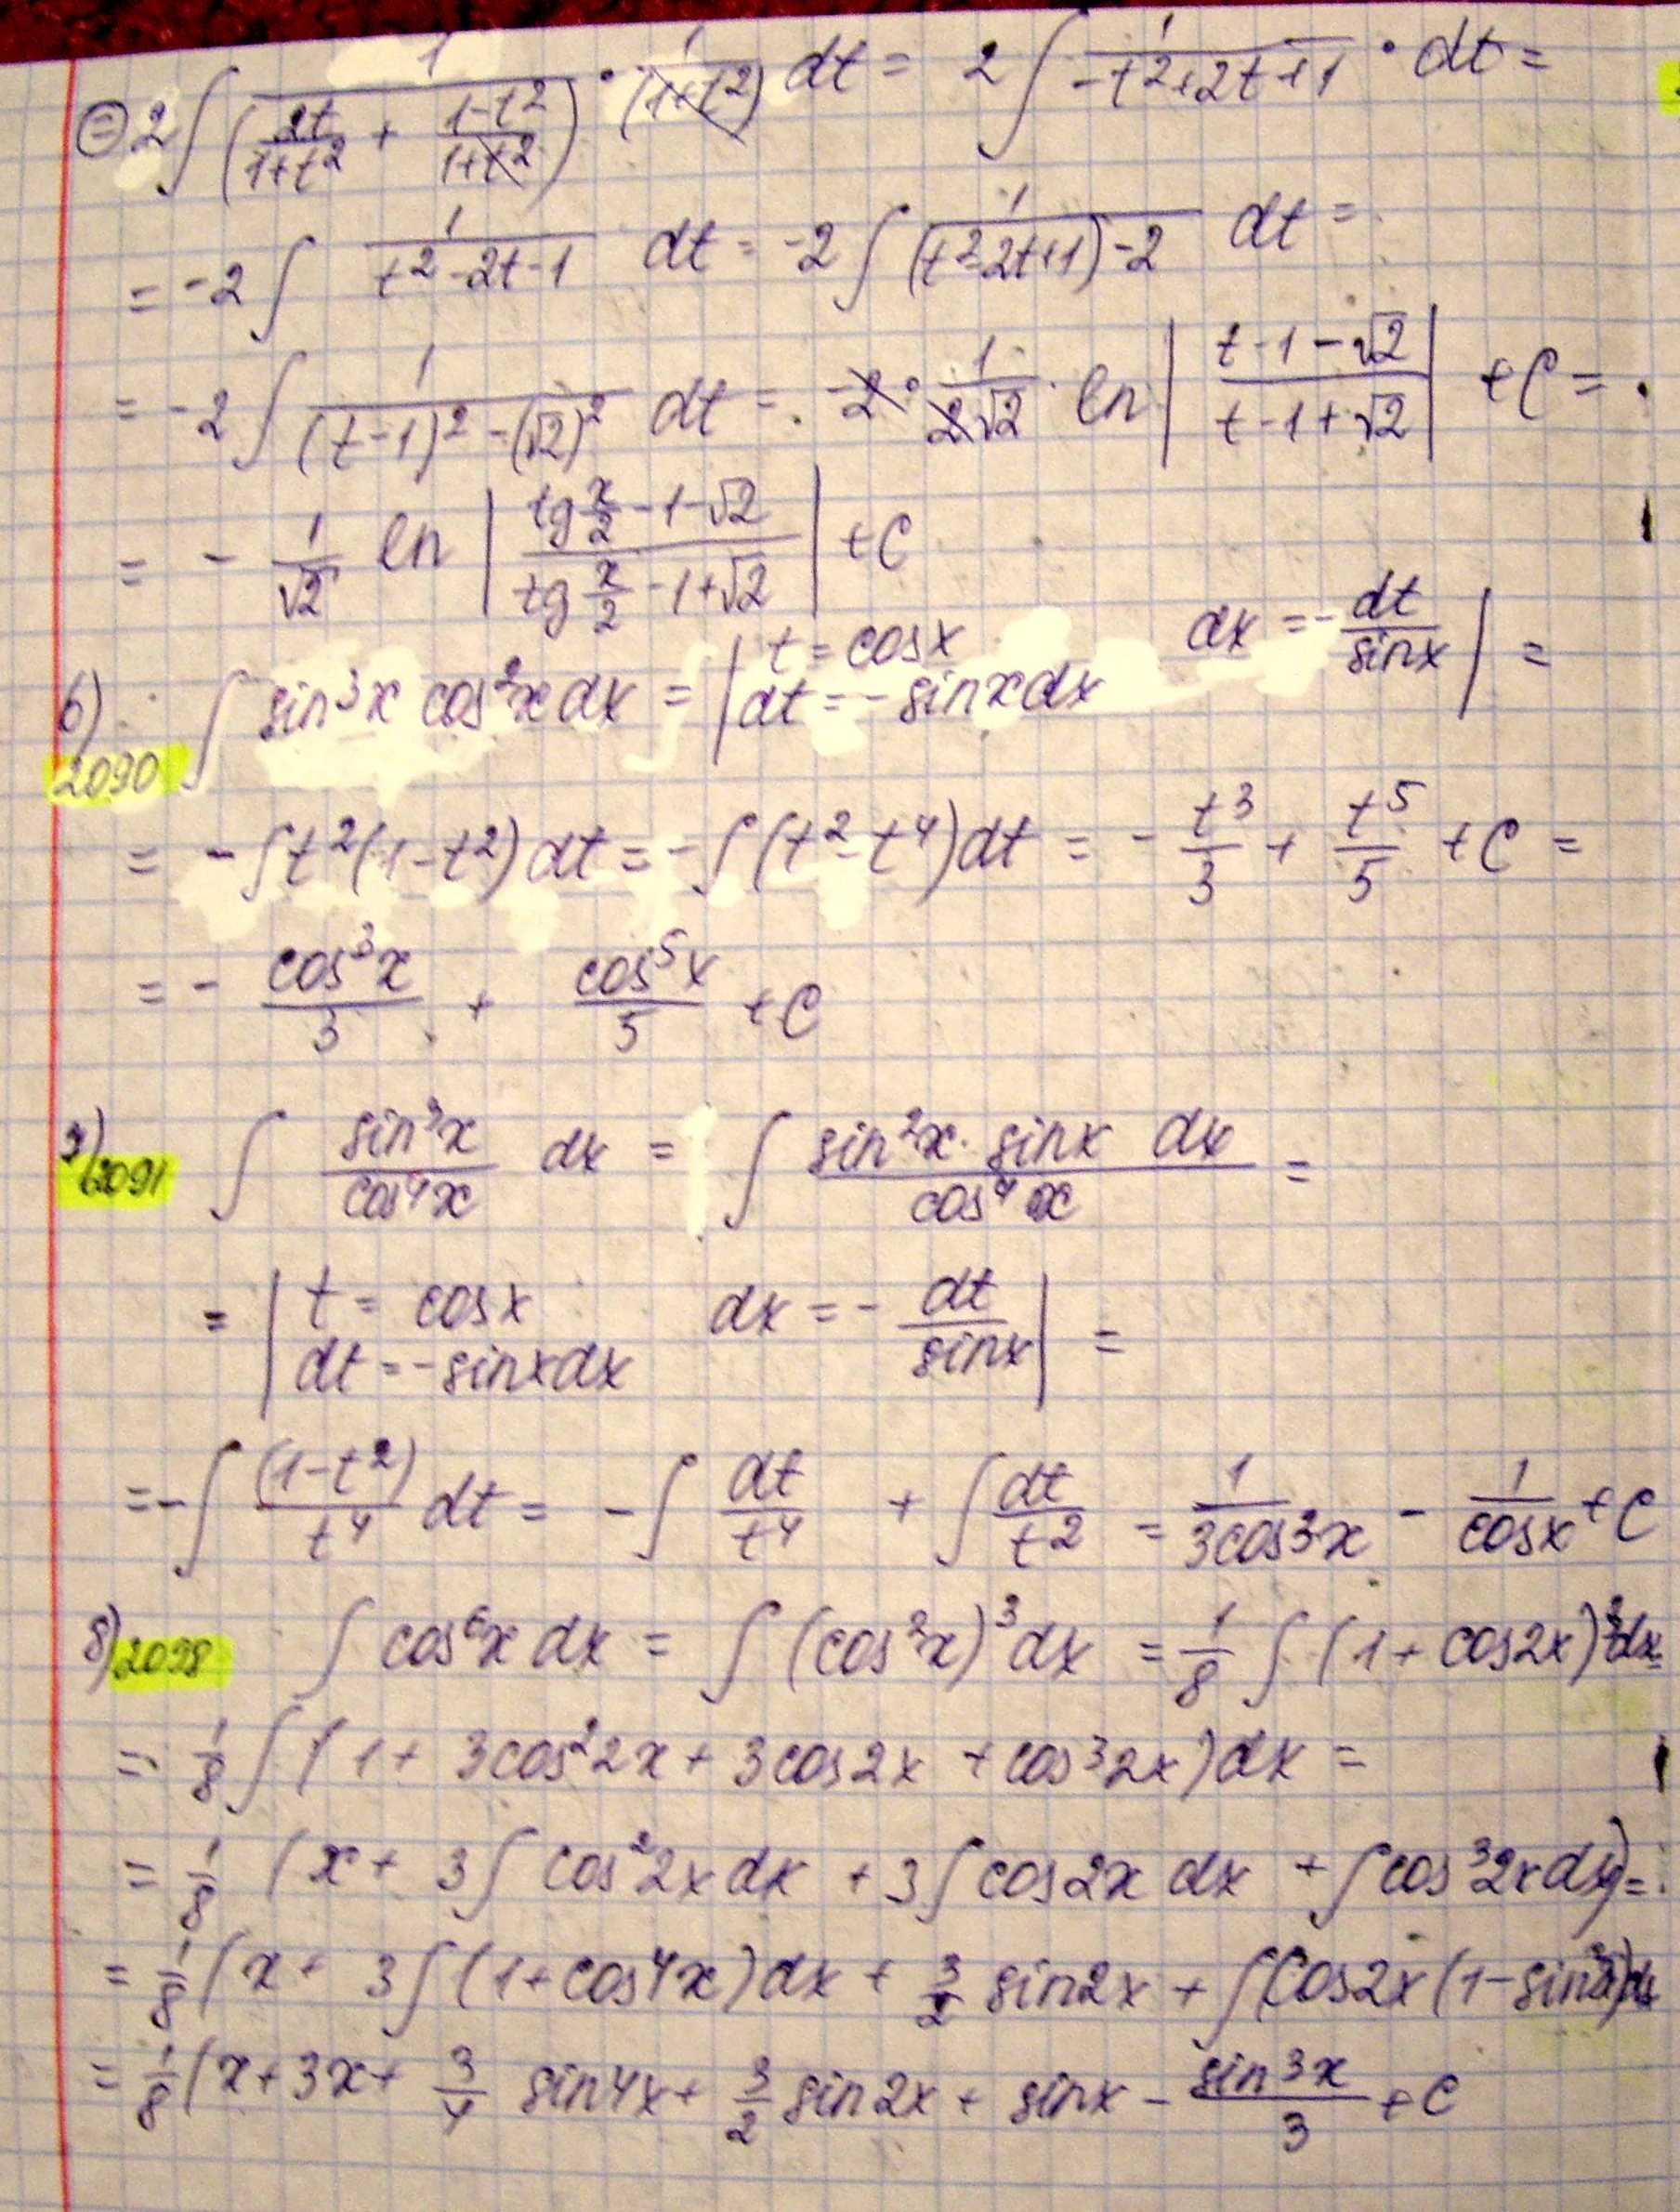 ⊜ 2∫ 1/(2t/(1+t²) + (1-t²)/(1+t²)) · 1/(1+t²) dt = 2∫ 1/(-t²+2t+1) · dt =
= -2∫ 1/(t²-2t-1) dt = -2∫ 1/((t²-2t+1)-2) dt =
= -2∫ 1/((t-1)²-(√2)²) dt = -2 · 1/(2√2) · ln |(t-1-√2)/(t-1+√2)| + C =
= - 1/√2 ln |(tg x/2 -1-√2)/(tg x/2 -1+√2)| + C
6) 2090 ∫ sin³x cos²x dx = | t = cosx dt = -sinxdx dx = - dt/sinx | =
= -∫t²(1-t²)dt = -∫(t²-t⁴)dt = - t³/3 + t⁵/5 + C =
= - cos³x/3 + cos⁵x/5 + C
7) 2091 ∫ sin³x/cos⁴x dx = ∫ sin²x · sinx dx/cos⁴x =
= | t = cosx dt = -sinxdx dx = - dt/sinx | =
= -∫ (1-t²)/t⁴ dt = -∫ dt/t⁴ + ∫ dt/t² = 1/3cos³x - 1/cosx + C
8) 2098 ∫ cos⁶x dx = ∫ (cos²x)³dx = 1/8 ∫ (1+cos2x)³dx =
= 1/8 ∫ (1 + 3cos²2x + 3cos2x + cos³2x)dx =
= 1/8 (x + 3∫cos²2xdx + 3∫cos2x dx + ∫cos³2xdx) =
= 1/8 (x + 3∫(1+cos4x)dx + 3/2 sin2x + ∫(cos2x(1-sin
= 1/8 (x+3x+ 3/4 sin4x + 3/2 sin2x + sinx - sin³x/3 + C